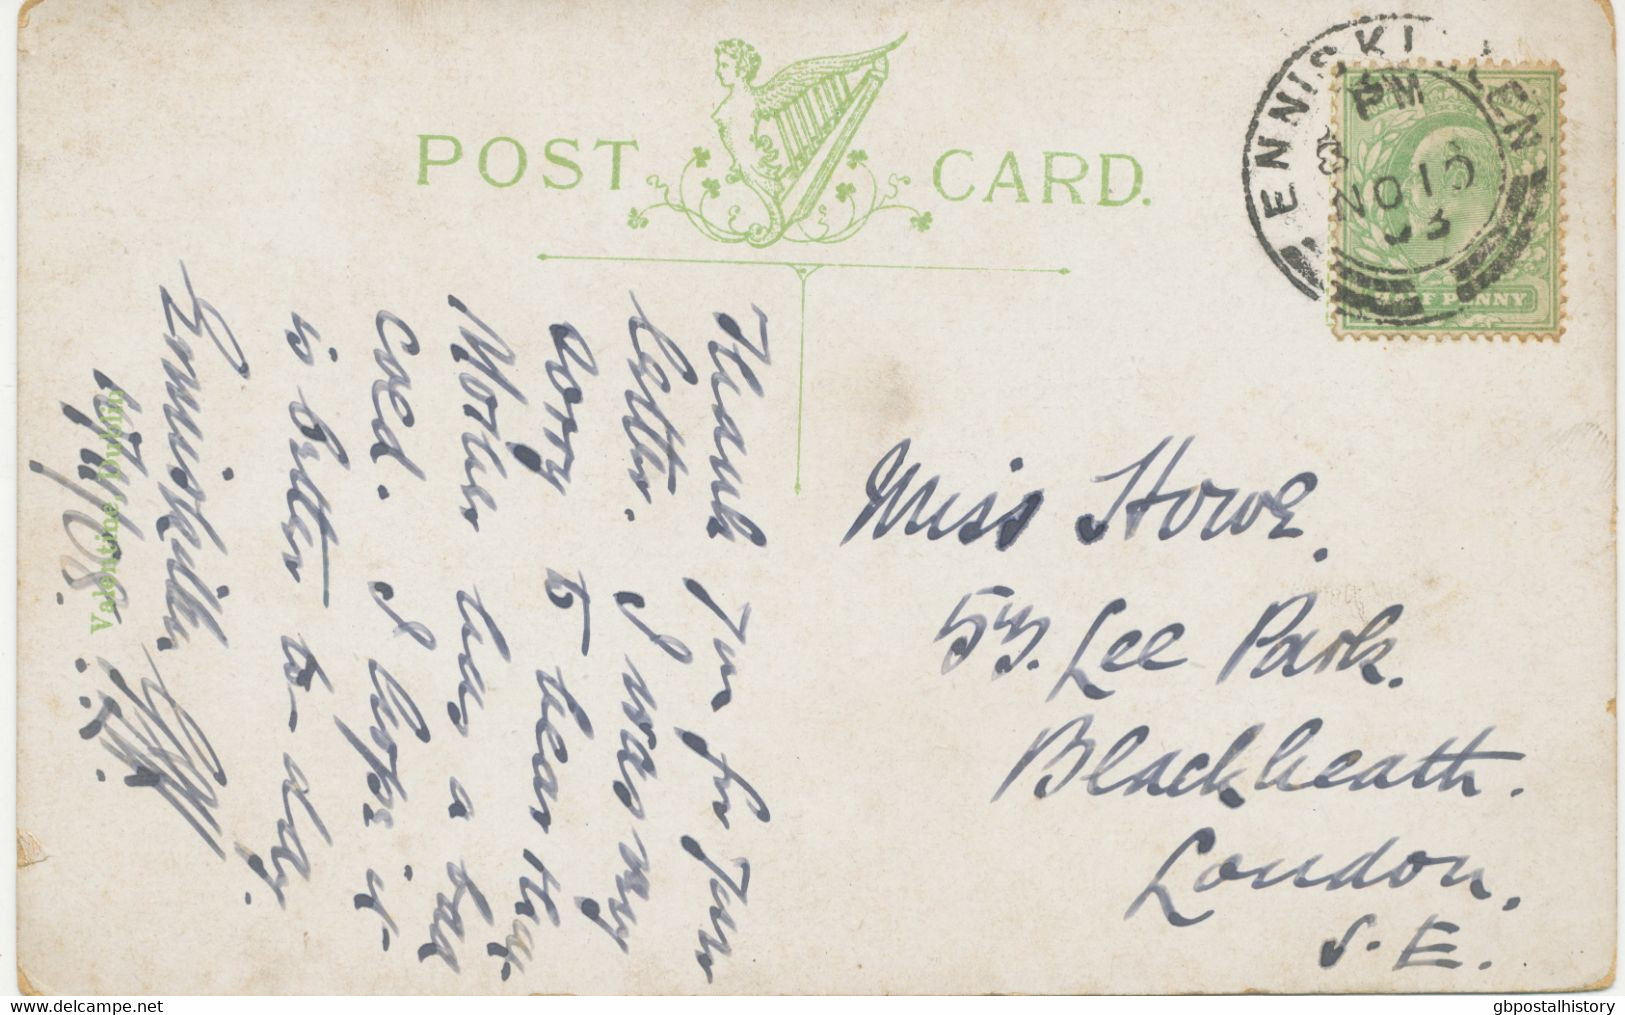 POST CARD.
ENNISKILLEN
PM
NO 10
08
HALF PENNY
Thank you for your
letter. I was very
sorry to hear that
Mother has a bad
cold. I hope it
is better to-day.
Enniskillen.
Valentine, Dublin
Miss Howe.
53. Lee Park.
Blackheath.
London.
S.E.
the-saleroom.com
gbpostalhistory